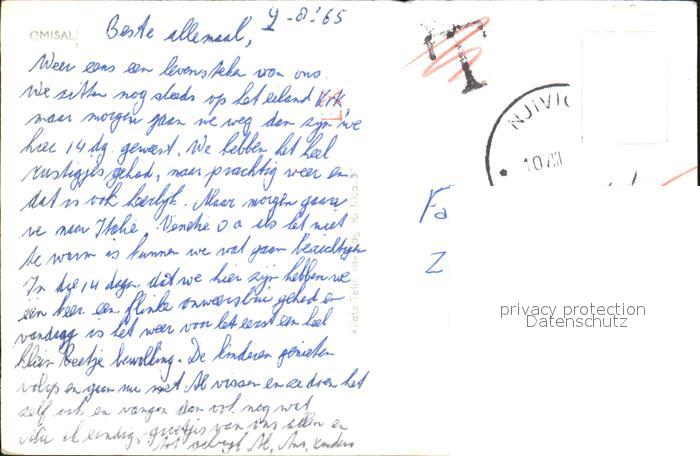 OMISALJ
9-8-'65
Beste allemaal,
Weer eens een levensteken van ons.
We zitten nog steeds op het eiland Krk,
maar morgen gaan we weg dan zijn we
hier 14 dg. geweest. We hebben het heel
rustigjes gehad, maar prachtig weer en
dat is ook heerlijk. Maar morgen gaan
we naar Italië, Venetië o a als het niet
te warm is kunnen we wat gaan bezichtigen
In die 14 dagen dat we hier zijn hebben we
een keer een flinke onweersbui gehad en
vandaag is het weer voor het eerst een heel
klein beetje bewolking. De kinderen genieten
volop en gaan nu met Ab vissen en ze doen het
zelf ook en vangen dan ook nog wat
Nu ik eindig, groetjes van ons allen en
tot schrijfs Ab, Ans, kinders
T
NJIVIC
10 VIII
Fa
Z
privacy protection
Datenschutz